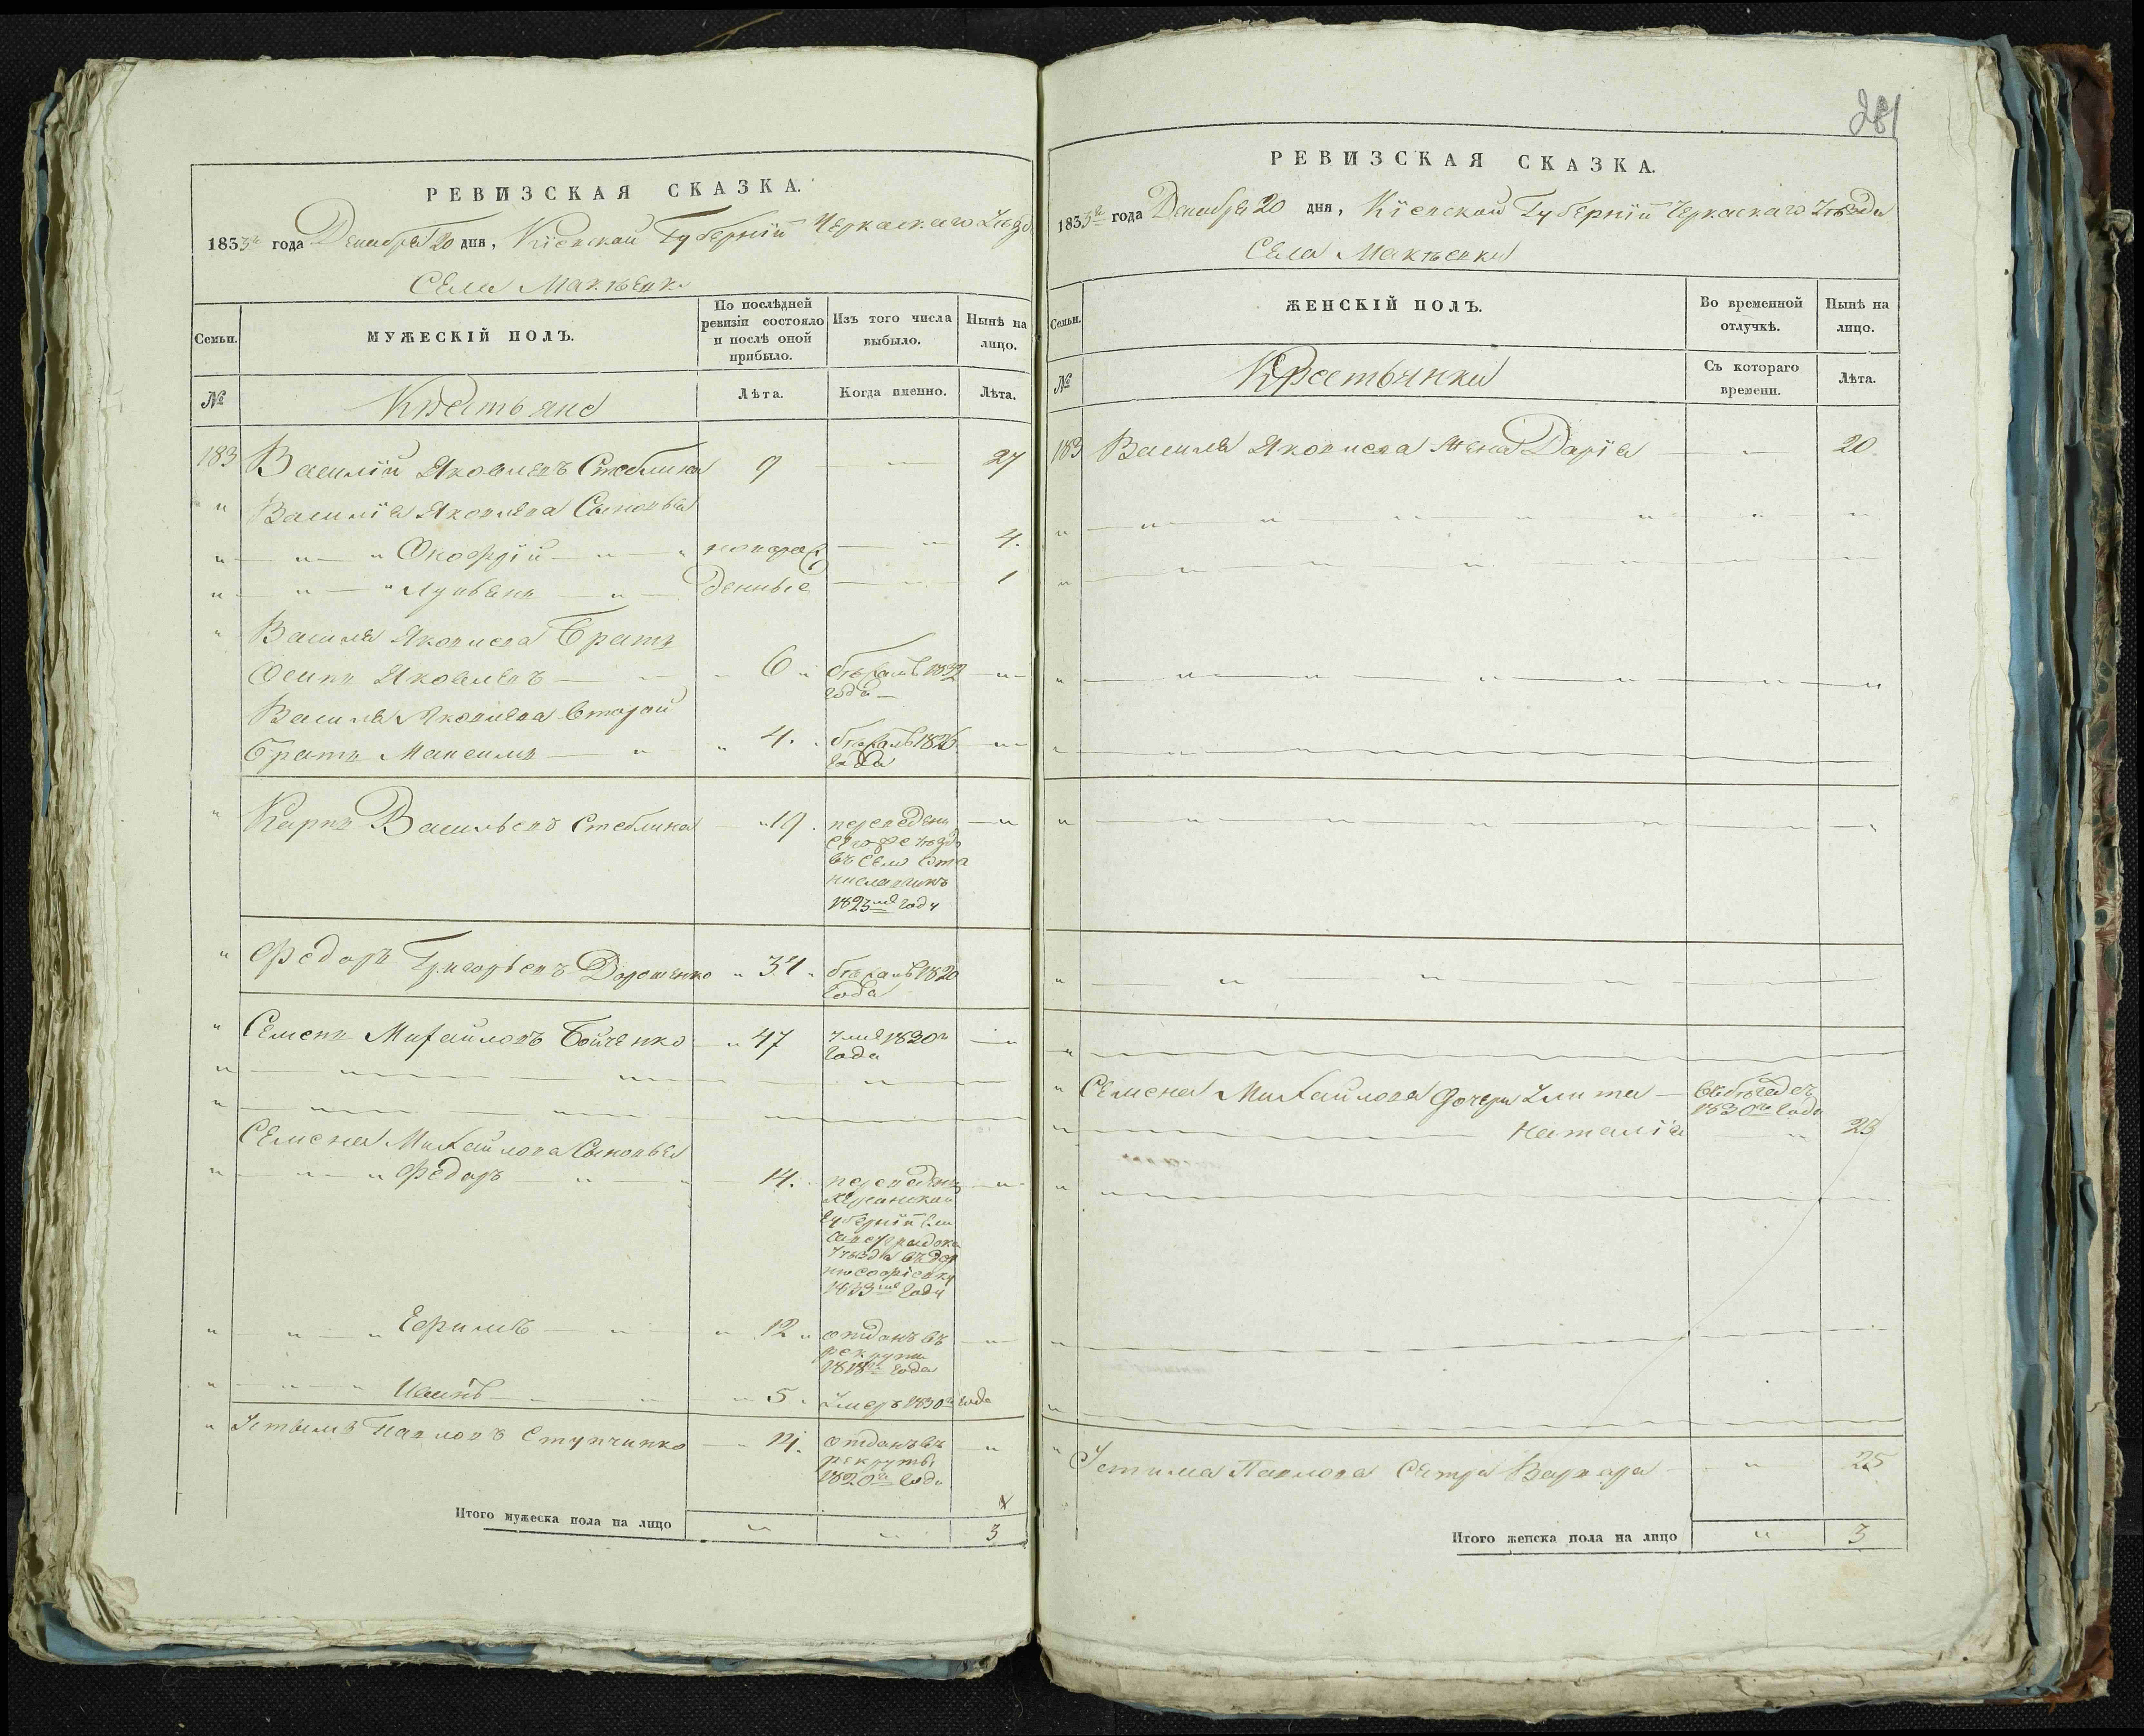 РЕВИЗСКАЯ СКАЗКА.
1833го года Декабря 20 дня, Кіевской Губерніи Черкаскаго Уезда
Села Макѣевки
Семьи.
МУЖЕСКІЙ ПОЛЪ.
По послѣдней ревизіи состояло и послѣ оной прибыло.
Изъ того числа выбыло.
Нынѣ на лицо.
№
Крестьяне
Лѣта.
Когда именно.
Лѣта.
183 Василій Яковлевъ Стеблина 9 27
Василія Яковлева Сыновья
Онофрій новорож 4.
Лукьянъ денные 1
Василя Яковлева Братъ
Осипъ Яковлевъ 6 бѣжалъ 1832
года
Василя Яковлева Второй
Братъ Максимъ 4. бѣжалъ 1826
года
Карпъ Васильевъ Стеблина 19. переведенъ
въ село Ста
ниславчикъ
1823 году
Федоръ Григорьевъ Дорошенко 31 бѣжалъ 1820
года
Семенъ Михайловъ Бойченко 47 1820го
года
Семена Михайлова Сыновья
Федоръ 14. переведенъ
Херсонской
губерніи Ели
саветградска
уѣзда въ дер
ню Софіевку
1833 году
Ефимъ 12 отданъ въ
рекруты
1818го года
5 умеръ 1830го года
Устимъ Павловъ Ступчинко 14. отданъ въ
рекруты
1820го году
Итого мужеска пола на лицо 3
281
РЕВИЗСКАЯ СКАЗКА.
1833го года Декабря 20 дня, Кіевской Губерніи Черкаскаго Уезда
Села Макѣевки
Семьи.
ЖЕНСКІЙ ПОЛЪ.
Во временной отлучкѣ.
Нынѣ на лицо.
№
Крестьянки
Съ котораго времени.
Лѣта.
183 Василя Яковлева жена Дарія 20.
Семена Михайлова дочери
1830го года
Наталія 23
Устима Павлова Сестра Варвара 25
Итого женска пола на лицо 3